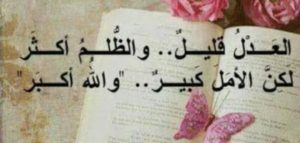 العَدْلُ قليلٌ.. والظُّلمُ أكثَر
لكنَّ الأمَل كبيرٌ.. "واللهُ أكبَر"